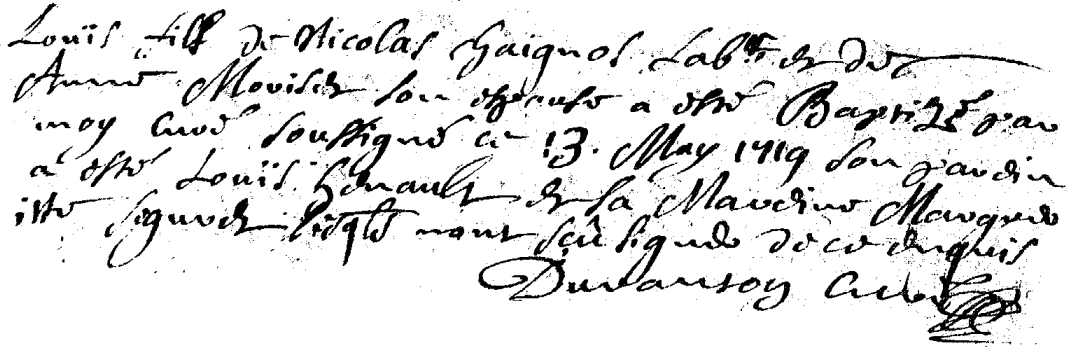 Louïs fils de Nicolas haignos Lab.r et de
Anne Moviset son espouse a esté Baptizé par
moy curé soussigné ce 13. May 1719 son pardin
a esté Louïs henault et la Mardine Margue
itte lesquels nont sçû signer de ce enquis
Duvanson Curé